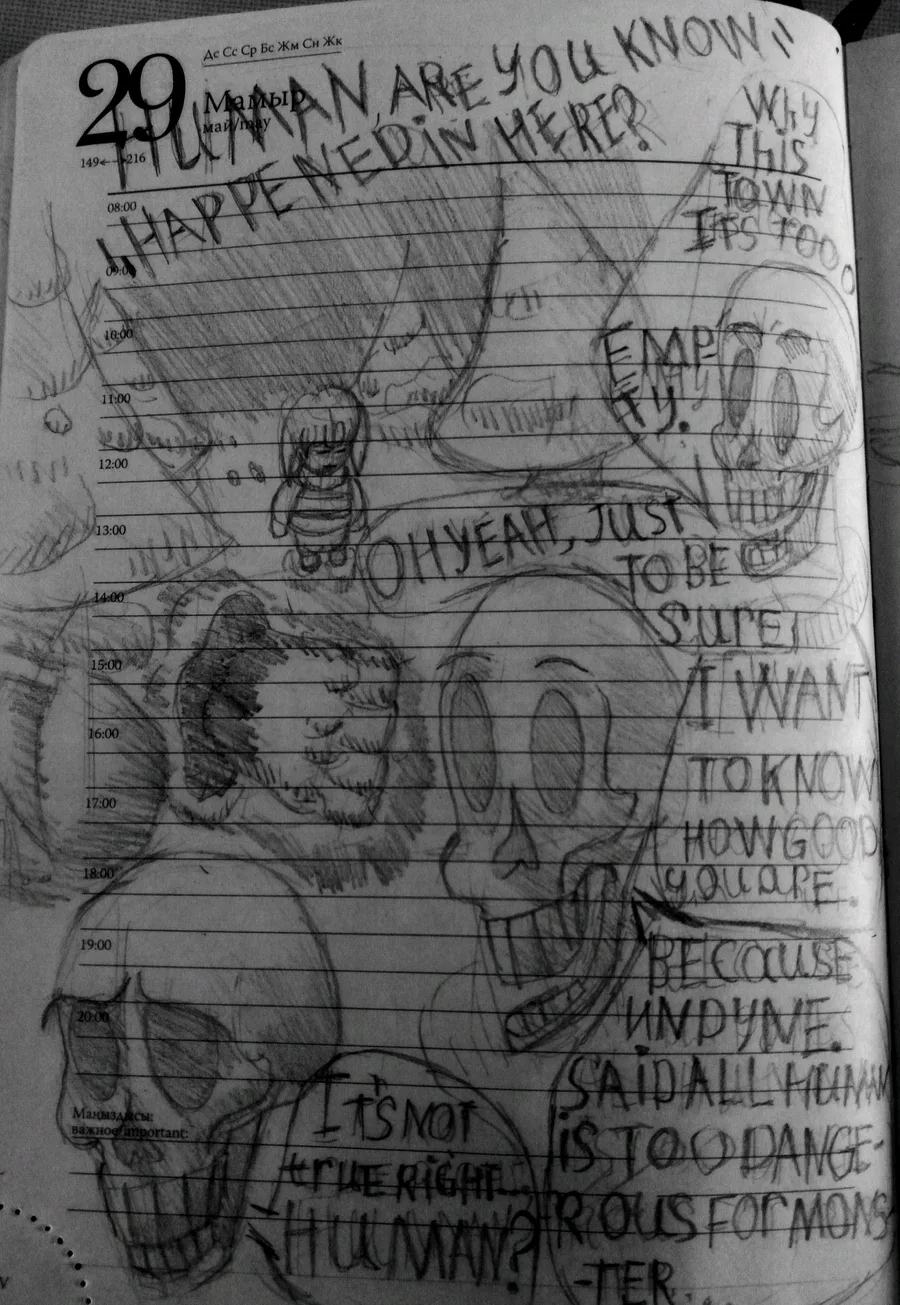 29
Дс Сс Ср Бс Жм Сн Жк
Мамыр
май/may
149←→216
HUMAN, ARE YOU KNOW
HAPPENED iN HERE?
Why
This
TOWN
ITS TOO
EMP
TY.
08:00
09:00
10:00
11:00
12:00
13:00
14:00
15:00
16:00
17:00
18:00
19:00
20:00
OH YEAH, JUST
TO BE
SURE
I WANT
TO KNOW
HOW GOOD
YOU ARE.
BECAUSE
UNDYNE.
SAID ALL HUMAN
iS TOO DANGE-
ROUS FOR MONS
-TER.
Маңыздысы:
важное/important:
ITS NOT
trUE RiGHT...
HUMAN?